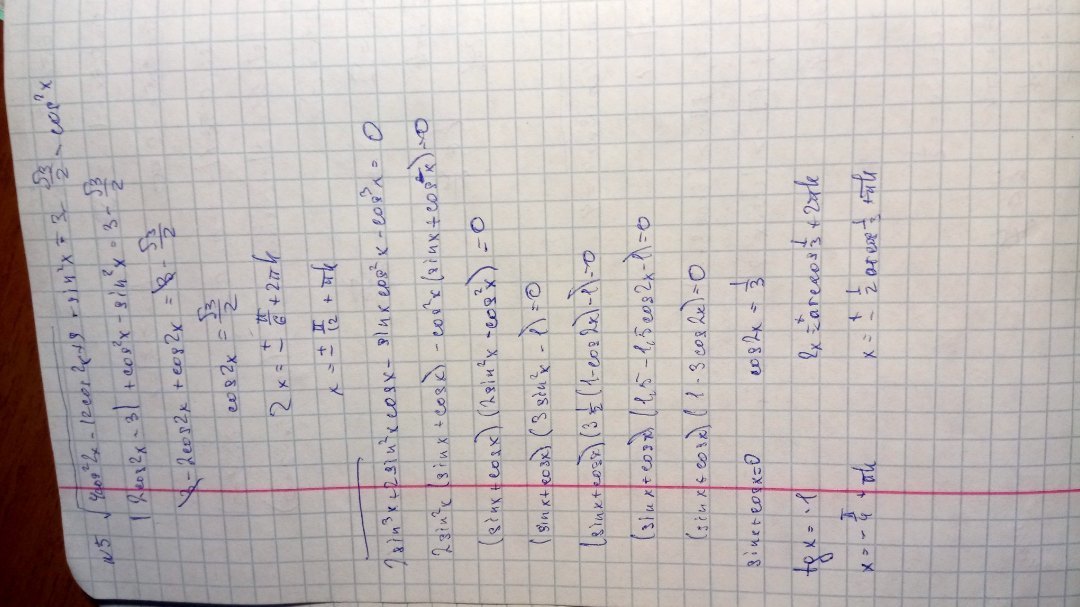 №5 √(4cos²2x - 12cos2x + 9) - sin²x = 3 - √3/2 - cos²x
|2cos2x - 3| + cos²x - sin²x = 3 - √3/2
3 - 2cos2x + cos2x = 3 - √3/2
cos2x = √3/2
2x = ± π/6 + 2πk
x = ± π/12 + πk
2sin³x + 2sin²x cosx - sinx cos²x - cos³x = 0
2sin²x (sinx + cosx) - cos²x (sinx + cosx) = 0
(sinx + cosx) (2sin²x - cos²x) = 0
(sinx + cosx) (3sin²x - 1) = 0
(sinx + cosx) (3 1/2 (1 - cos2x) - 1) = 0
(sinx + cosx) (1,5 - 1,5cos2x - 1) = 0
(sinx + cosx) (1 - 3cos2x) = 0
sinx + cosx = 0 cos2x = 1/3
tgx = -1 2x = ± arccos 1/3 + 2πk
x = - π/4 + πk x = ± 1/2 arccos 1/3 + πk